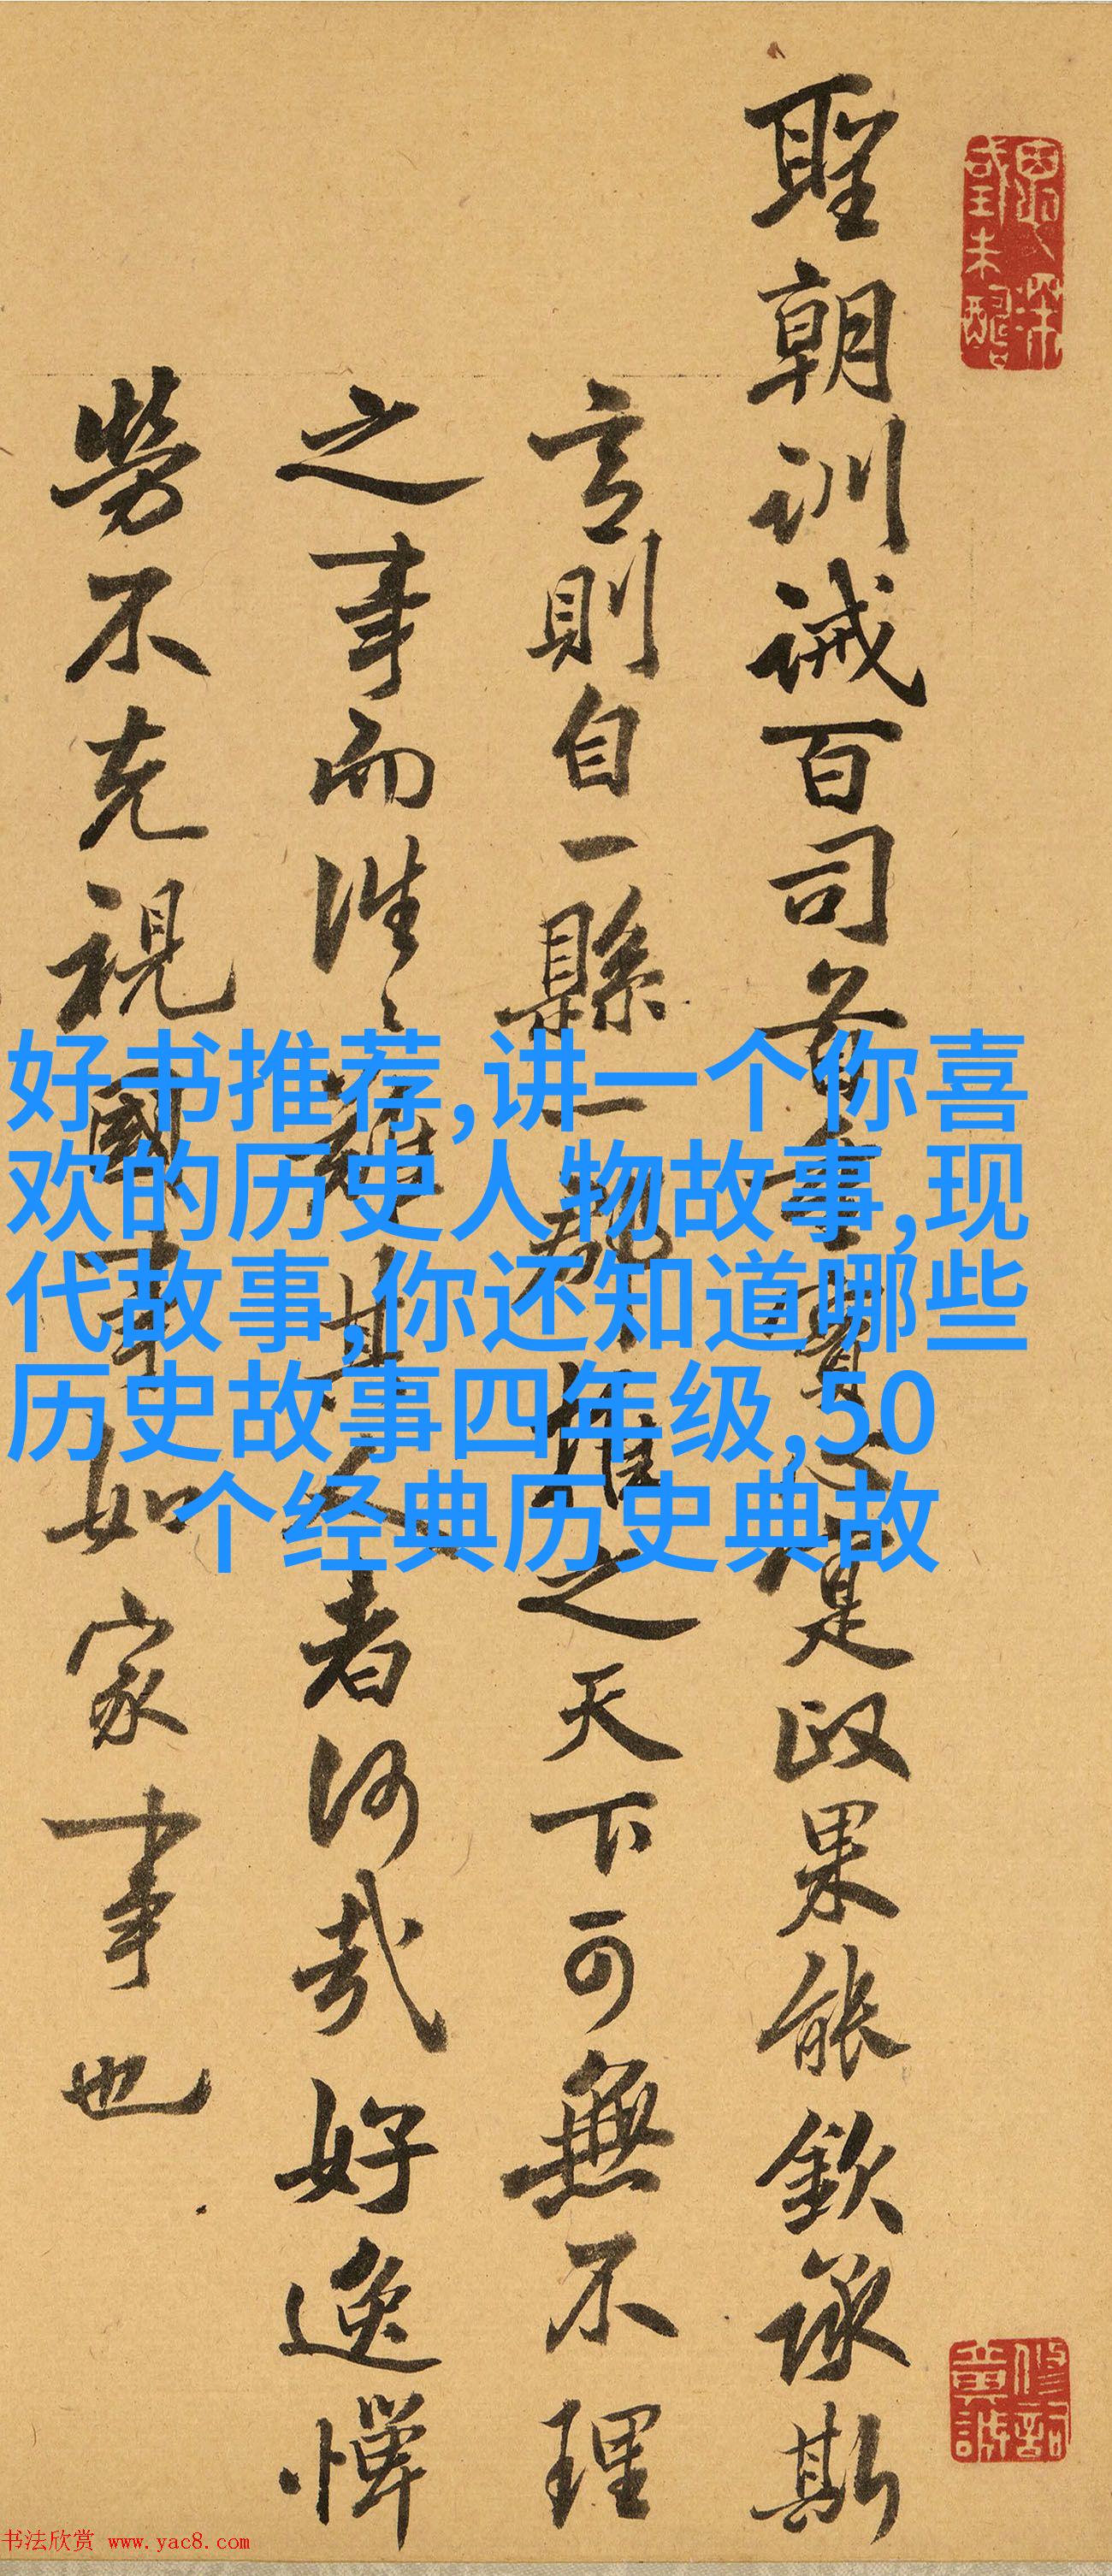 聖朝訓誡百司首重實心寔政果能欽承斯
言則自一縣一郡推之天下可無不理
之事而往〻難其人者何哉好逸憚
勞不克視國事如家事也
好书推荐,讲一个你喜
欢的历史人物故事,现
代故事,你还知道哪些
历史故事四年级,50
个经典历史典故
书法欣赏 www.yac8.com